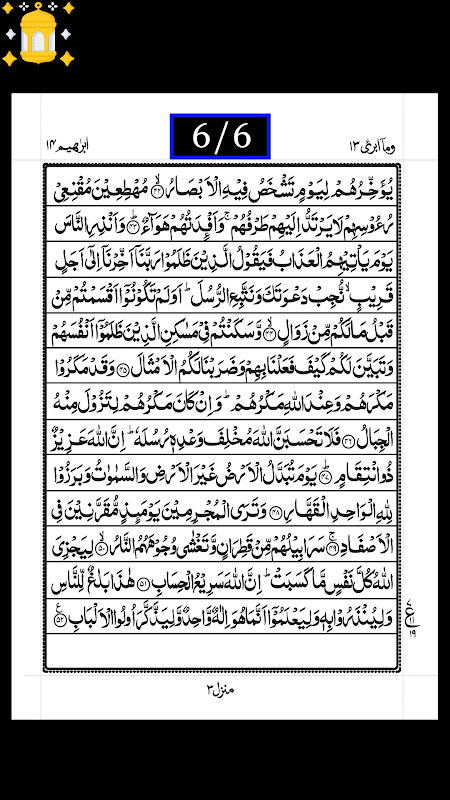 6/6
وما ابرئ ١٣
ابرٰهیم ١۴
یُؤَخِّرُهُمْ لِیَوْمٍ تَشْخَصُ فِیْهِ الْاَبْصَارُ ﴿۴۲﴾ مُهْطِعِیْنَ مُقْنِعِیْ
رُءُوْسِهِمْ لَا یَرْتَدُّ اِلَیْهِمْ طَرْفُهُمْ ۚ وَاَفْـِٕدَتُهُمْ هَوَآءٌ ﴿۴۳﴾ وَاَنْذِرِ النَّاسَ
یَوْمَ یَاْتِیْهِمُ الْعَذَابُ فَیَقُوْلُ الَّذِیْنَ ظَلَمُوْا رَبَّنَاۤ اَخِّرْنَاۤ اِلٰۤی اَجَلٍ
قَرِیْبٍ ۙ نُّجِبْ دَعْوَتَكَ وَنَتَّبِعِ الرُّسُلَ ؕ اَوَلَمْ تَكُوْنُوْۤا اَقْسَمْتُمْ مِّنْ
قَبْلُ مَا لَكُمْ مِّنْ زَوَالٍ ﴿۴۴﴾ وَّسَكَنْتُمْ فِیْ مَسٰكِنِ الَّذِیْنَ ظَلَمُوْۤا اَنْفُسَهُمْ
وَتَبَیَّنَ لَكُمْ كَیْفَ فَعَلْنَا بِهِمْ وَضَرَبْنَا لَكُمُ الْاَمْثَالَ ﴿۴۵﴾ وَقَدْ مَكَرُوْا
مَكْرَهُمْ وَعِنْدَ اللّٰهِ مَكْرُهُمْ ؕ وَاِنْ كَانَ مَكْرُهُمْ لِتَزُوْلَ مِنْهُ
الْجِبَالُ ﴿۴۶﴾ فَلَا تَحْسَبَنَّ اللّٰهَ مُخْلِفَ وَعْدِهٖ رُسُلَهٗ ؕ اِنَّ اللّٰهَ عَزِیْزٌ
ذُو انْتِقَامٍ ﴿۴۷﴾ یَوْمَ تُبَدَّلُ الْاَرْضُ غَیْرَ الْاَرْضِ وَالسَّمٰوٰتُ وَبَرَزُوْا
لِلّٰهِ الْوَاحِدِ الْقَهَّارِ ﴿۴۸﴾ وَتَرَی الْمُجْرِمِیْنَ یَوْمَىِٕذٍ مُّقَرَّنِیْنَ فِی
الْاَصْفَادِ ﴿۴۹﴾ سَرَابِیْلُهُمْ مِّنْ قَطِرَانٍ وَّتَغْشٰی وُجُوْهَهُمُ النَّارُ ﴿۵۰﴾ لِیَجْزِیَ
اللّٰهُ كُلَّ نَفْسٍ مَّا كَسَبَتْ ؕ اِنَّ اللّٰهَ سَرِیْعُ الْحِسَابِ ﴿۵۱﴾ هٰذَا بَلٰغٌ لِّلنَّاسِ
وَلِیُنْذَرُوْا بِهٖ وَلِیَعْلَمُوْۤا اَنَّمَا هُوَ اِلٰهٌ وَّاحِدٌ وَّلِیَذَّكَّرَ اُولُوا الْاَلْبَابِ ﴿۵۲﴾
٧
ع
١١
١٩
منزل ٣